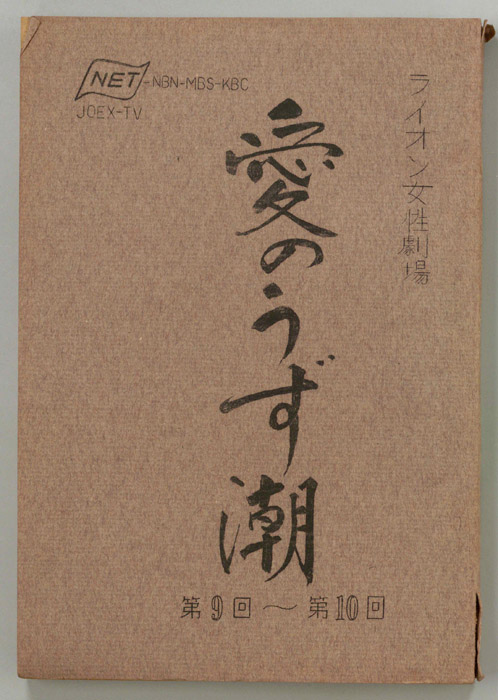 NET-NBN-MBS-KBC
JOEX-TV
ライオン女性劇場
愛のうず潮
第9回〜第10回